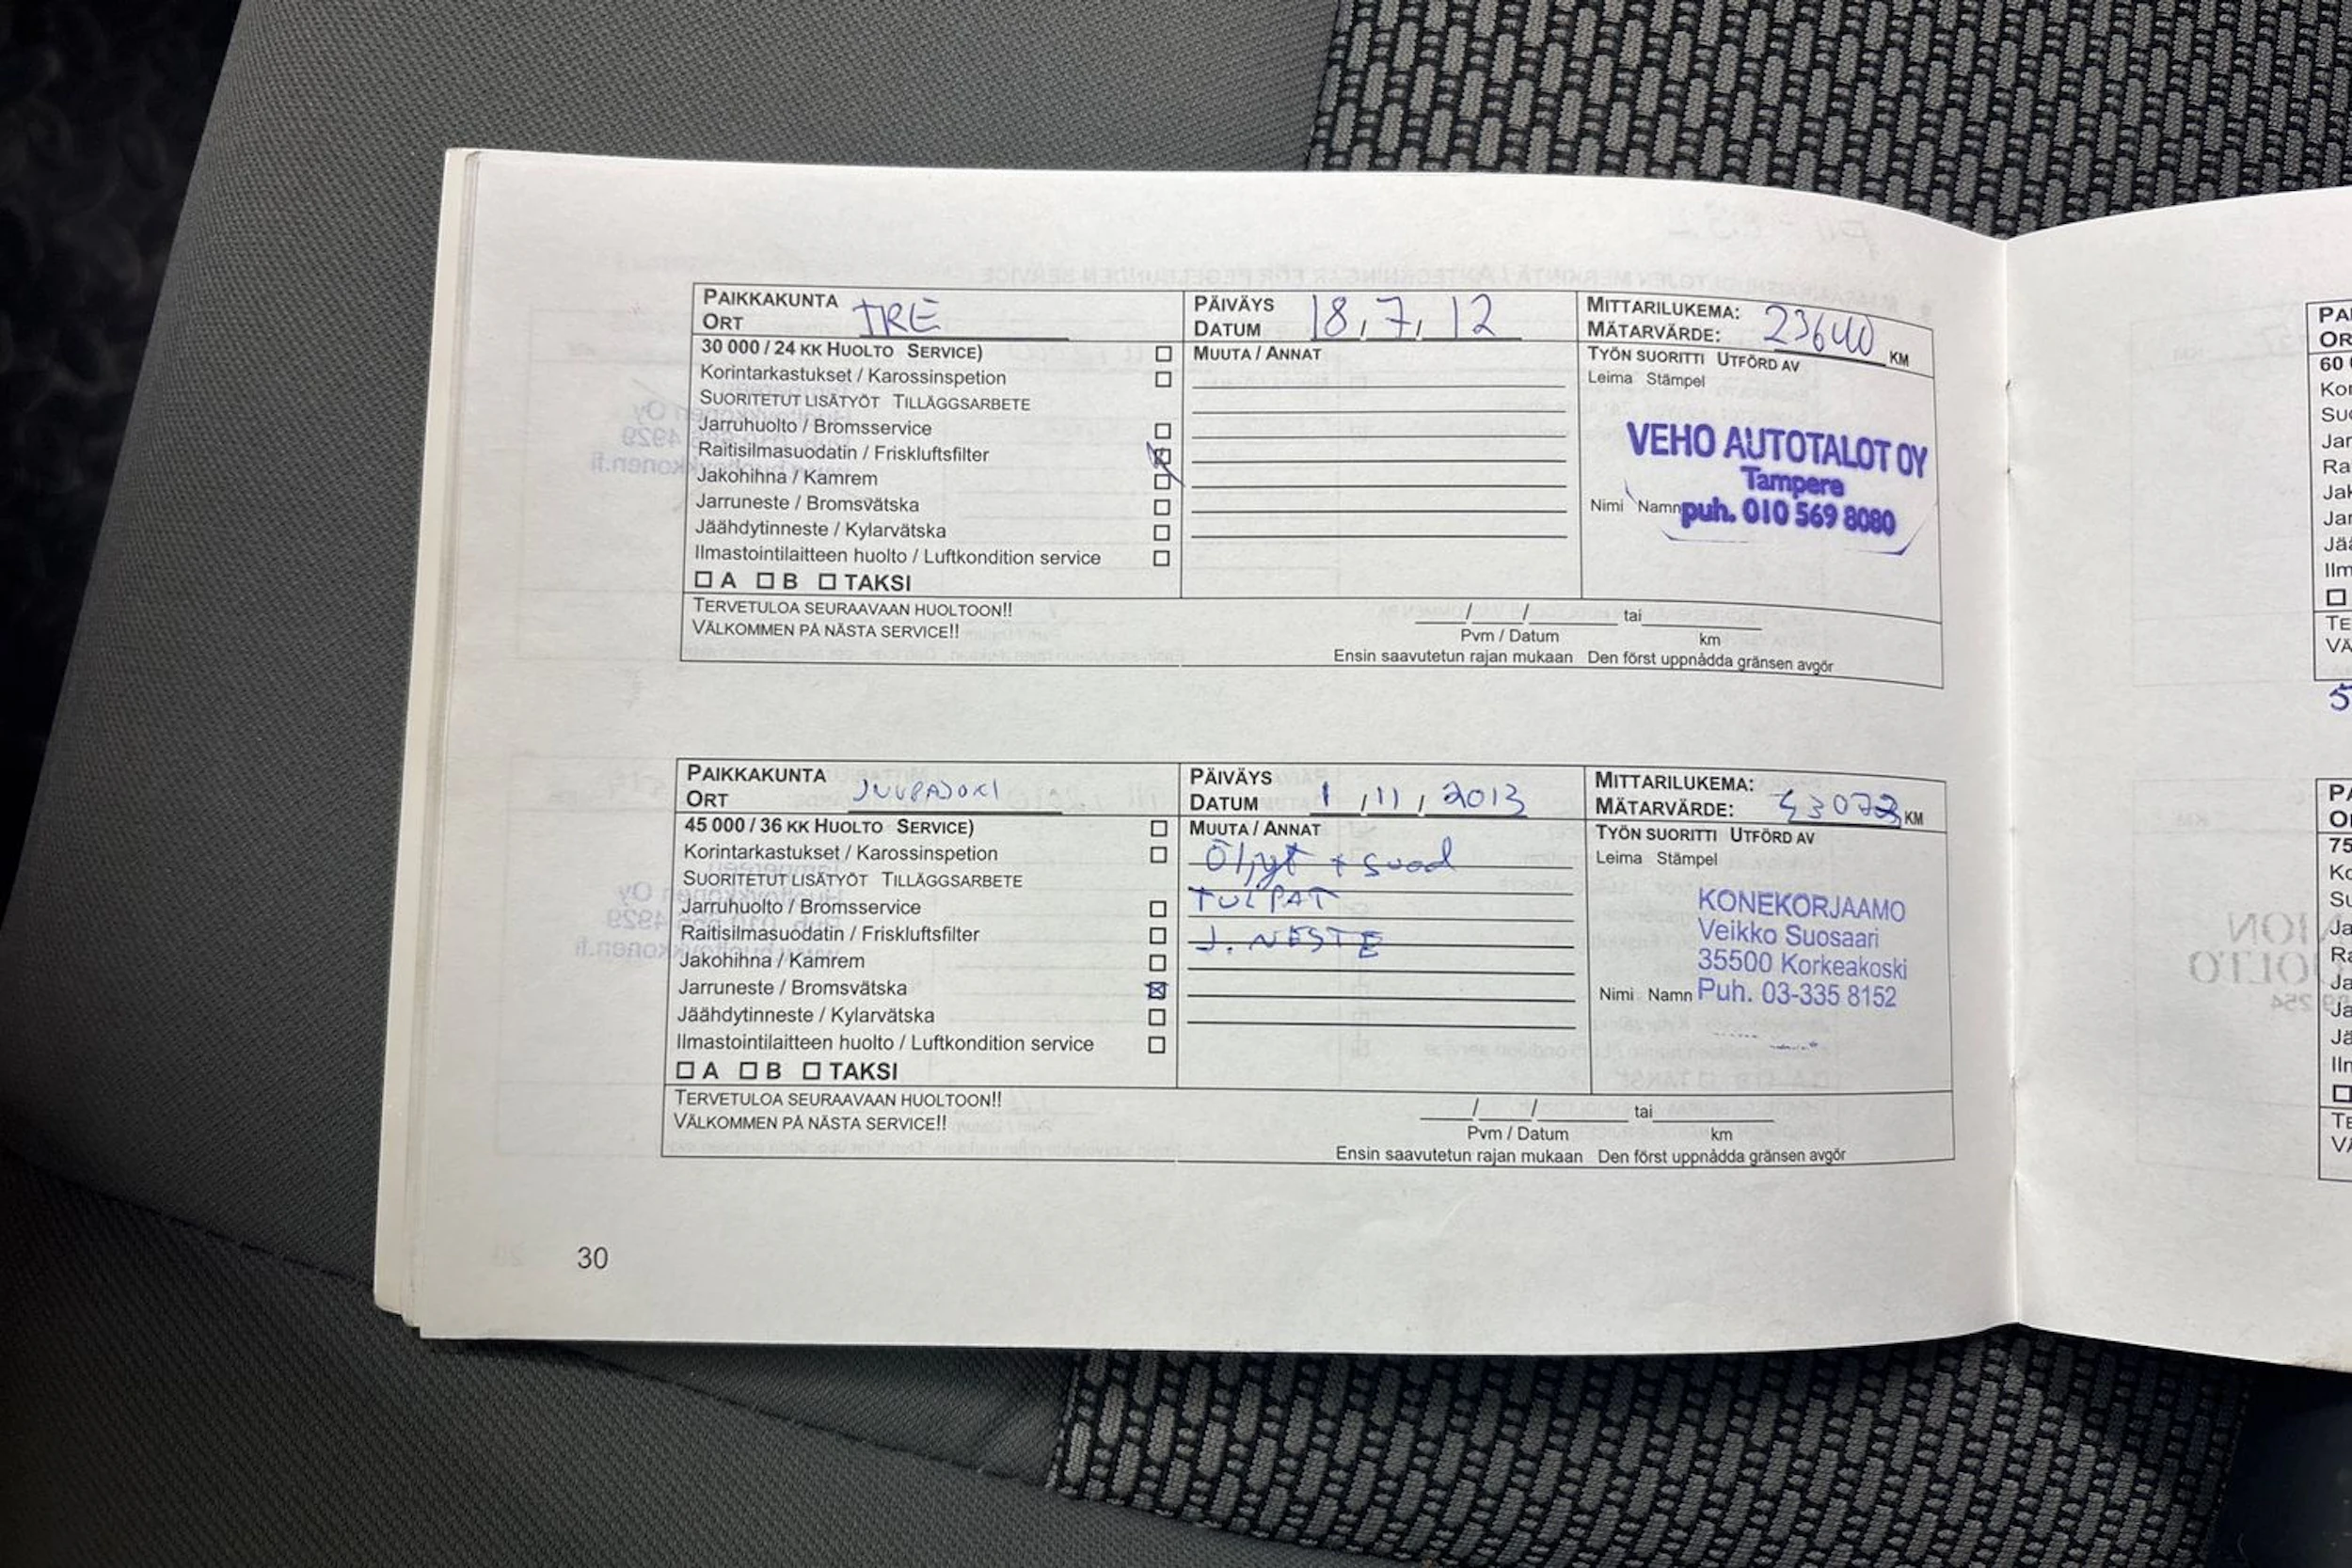 PAIKKAKUNTA
ORT TRE
PÄIVÄYS
DATUM 18 / 7 / 12
MITTARILUKEMA:
MÄTARVÄRDE: 23640 KM
30 000 / 24 KK HUOLTO SERVICE) ☐
Korintarkastukset / Karossinspetion ☐
SUORITETUT LISÄTYÖT TILLÄGGSARBETE
Jarruhuolto / Bromsservice ☐
Raitisilmasuodatin / Friskluftsfilter ☒
Jakohihna / Kamrem ☐
Jarruneste / Bromsvätska ☐
Jäähdytinneste / Kylarvätska ☐
Ilmastointilaitteen huolto / Luftkondition service ☐
☐ A ☐ B ☐ TAKSI
MUUTA / ANNAT
TYÖN SUORITTI UTFÖRD AV
Leima Stämpel
VEHO AUTOTALOT OY
Tampere
Nimi Namn puh. 010 569 8080
TERVETULOA SEURAAVAAN HUOLTOON!!
VÄLKOMMEN PÅ NÄSTA SERVICE!!
/ / tai
Pvm / Datum km
Ensin saavutetun rajan mukaan Den först uppnådda gränsen avgör
PAIKKAKUNTA
ORT JUUPAJOKI
PÄIVÄYS
DATUM 1 / 11 / 2013
MITTARILUKEMA:
MÄTARVÄRDE: KM
45 000 / 36 KK HUOLTO SERVICE) ☐
Korintarkastukset / Karossinspetion ☐
SUORITETUT LISÄTYÖT TILLÄGGSARBETE
Jarruhuolto / Bromsservice ☐
Raitisilmasuodatin / Friskluftsfilter ☐
Jakohihna / Kamrem ☐
Jarruneste / Bromsvätska ☒
Jäähdytinneste / Kylarvätska ☐
Ilmastointilaitteen huolto / Luftkondition service ☐
☐ A ☐ B ☐ TAKSI
MUUTA / ANNAT
Öljyt + suod
TULPAT
J. NESTE
TYÖN SUORITTI UTFÖRD AV
Leima Stämpel
KONEKORJAAMO
Veikko Suosaari
35500 Korkeakoski
Nimi Namn Puh. 03-335 8152
TERVETULOA SEURAAVAAN HUOLTOON!!
VÄLKOMMEN PÅ NÄSTA SERVICE!!
/ / tai
Pvm / Datum km
Ensin saavutetun rajan mukaan Den först uppnådda gränsen avgör
30